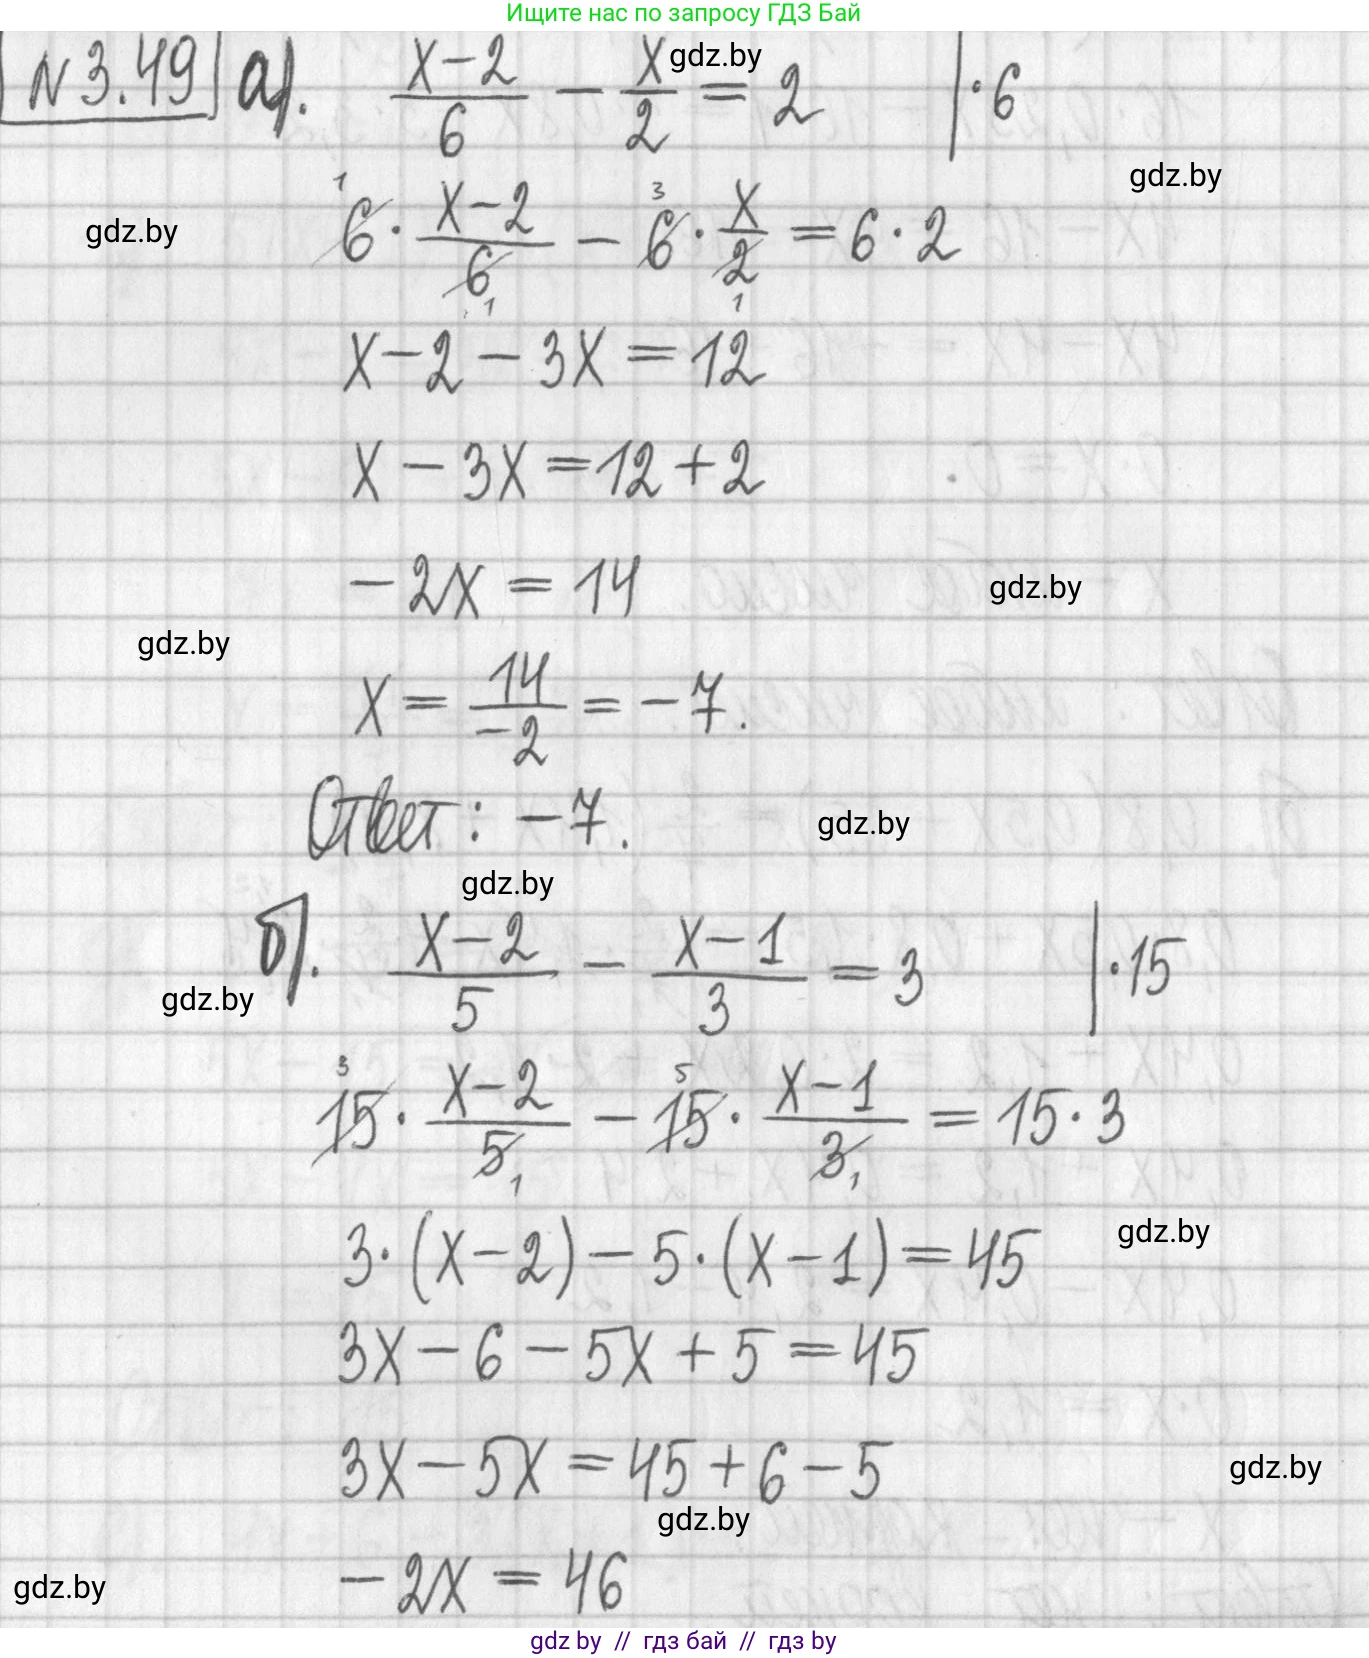 Ищите нас по запросу ГДЗ Бай
N 3.49 а). (x-2)/6 - x/2 = 2 | ·6
gdz.by
gdz.by
1 3
6 · (x-2)/6 - 6 · x/2 = 6 · 2
gdz.by
1 1
x - 2 - 3x = 12
x - 3x = 12 + 2
-2x = 14
gdz.by
gdz.by
x = 14/-2 = -7.
Ответ: -7.
gdz.by
gdz.by
б). (x-2)/5 - (x-1)/3 = 3 | ·15
gdz.by
3 5
15 · (x-2)/5 - 15 · (x-1)/3 = 15 · 3
1 1
3 · (x-2) - 5 · (x-1) = 45
gdz.by
3x - 6 - 5x + 5 = 45
3x - 5x = 45 + 6 - 5
gdz.by
gdz.by
-2x = 46
gdz.by
gdz by // гдз бай // гдз by